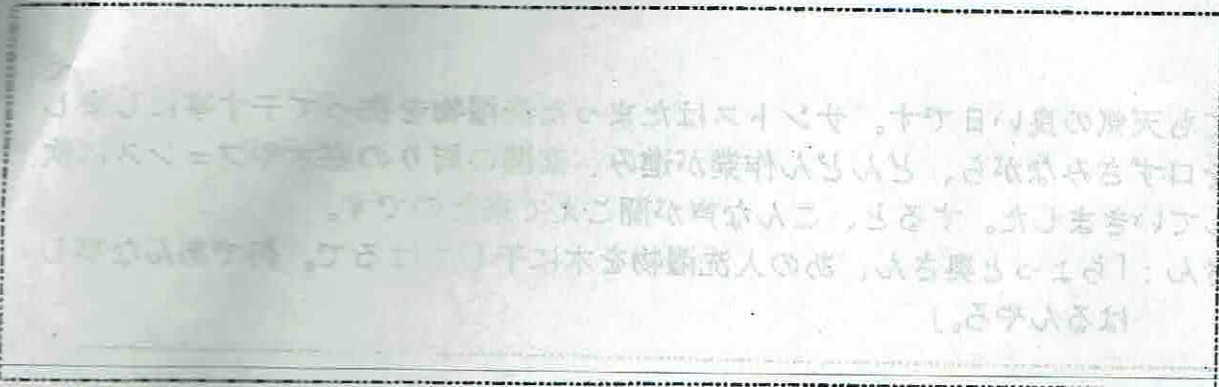 ても天気の良い日です。サントスはたまった洗濯物を洗って干す事にしまし
口ずさみながら、どんどん作業が進み、玄関の周りの やフェンスに
していきました。すると、こんな声が聞こえて来たのです。
さん：「ちょっと奥さん、あの人洗濯物を木に干してはるで。何であんな事し
はるんやろ。」